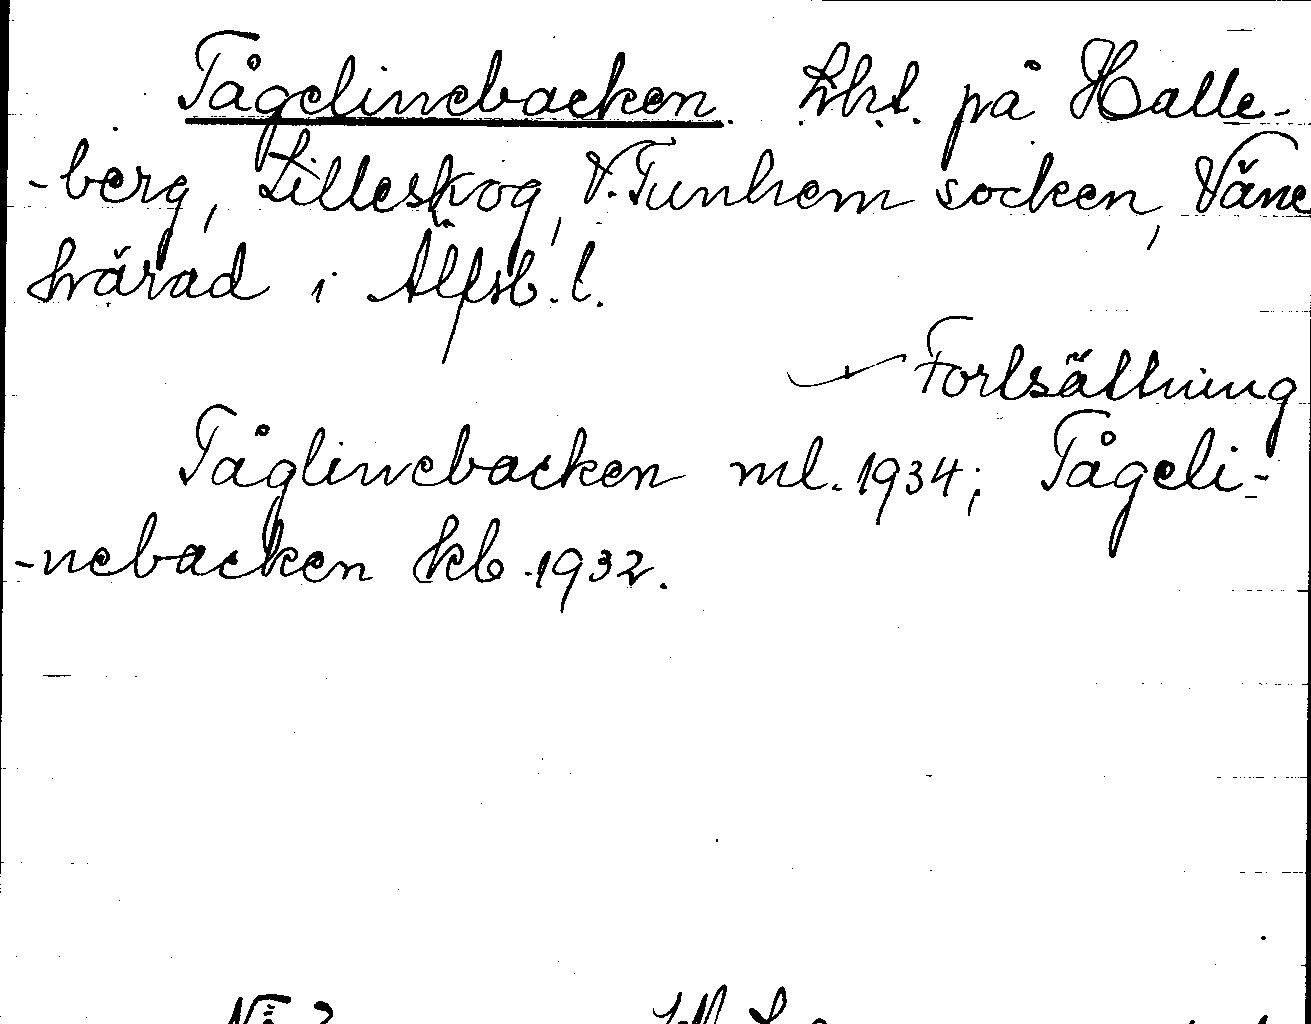 Tågelinebacken. Lht. på Halle-
-berg, Lilleskog, V. Tunhem socken, Väne
härad i Älfsb. l.
Fortsättning
Tåglinebacken ml. 1934; Tågeli-
-nebacken kb. 1932.